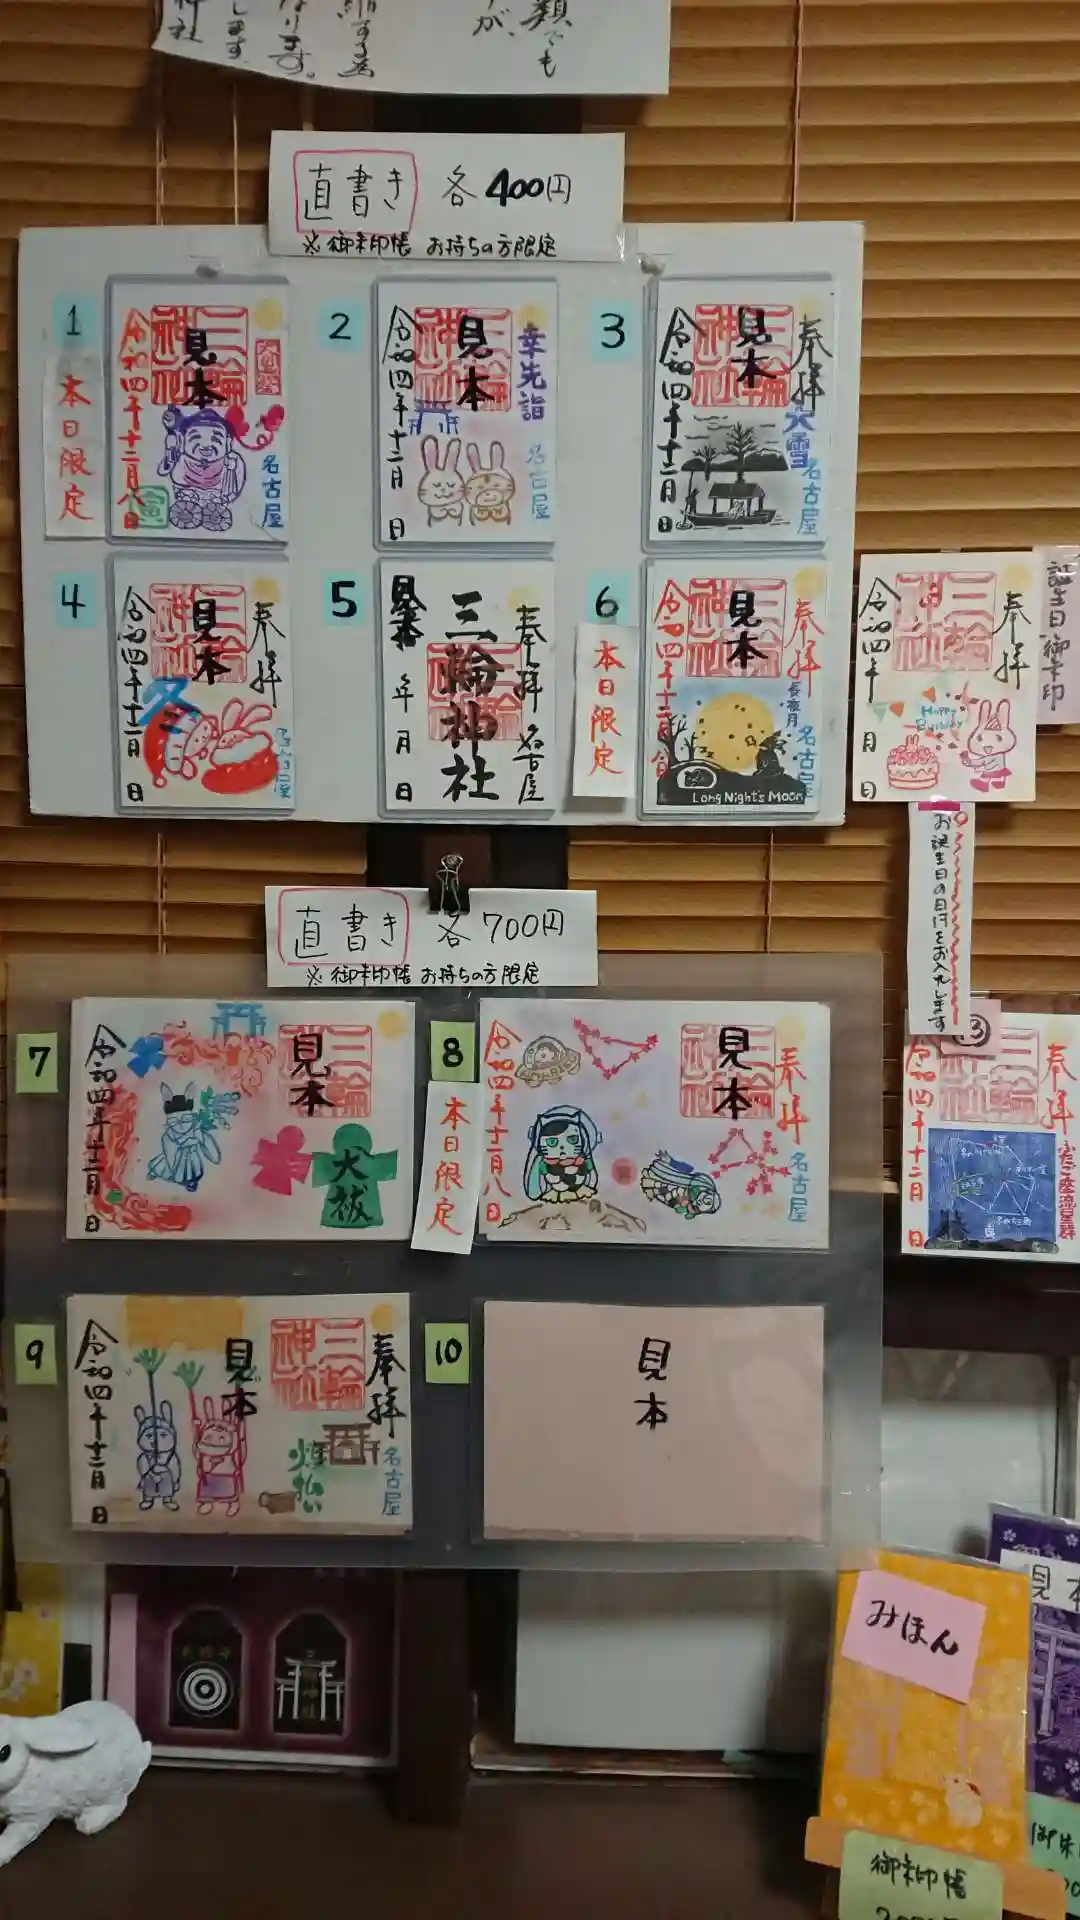 類でも
が、
神社
直書き 各400円
※御朱印帳 お持ちの方限定
1
本日限定
見本
三輪神社
令和四年十二月八日
名古屋
2
幸先詣
見本
三輪神社
令和四年十二月 日
名古屋
3
奉拝
見本
三輪神社
大雪
令和四年十二月 日
名古屋
4
奉拝
見本
三輪神社
冬
令和四年十二月 日
名古屋
5
奉拝
名古屋
三輪神社
見本
年 月 日
6
本日限定
奉拝
見本
三輪神社
長夜月
名古屋
Long Night's Moon
誕生日御朱印
奉拝
三輪神社
令和四年 月 日
Happy Birthday
お誕生日の日付をお入れします
直書き 各700円
※御朱印帳 お持ちの方限定
7
見本
三輪神社
大祓
令和四年十二月 日
8
本日限定
奉拝
見本
三輪神社
令和四年十二月八日
名古屋
③
奉拝
三輪神社
ふたご座流星群
令和四年十二月 日
9
奉拝
見本
三輪神社
煤払い
令和四年十二月 日
名古屋
10
見本
みほん
御朱印帳
見本